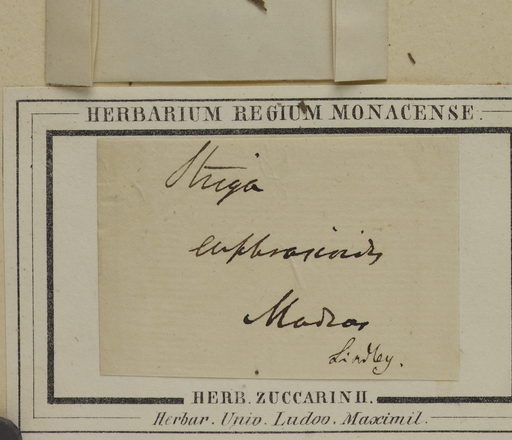 HERBARIUM REGIUM MONACENSE.
Striga
euphrasioides
Madras
Lindley.
HERB. ZUCCARINII.
Herbar. Univ. Ludov. Maximil.